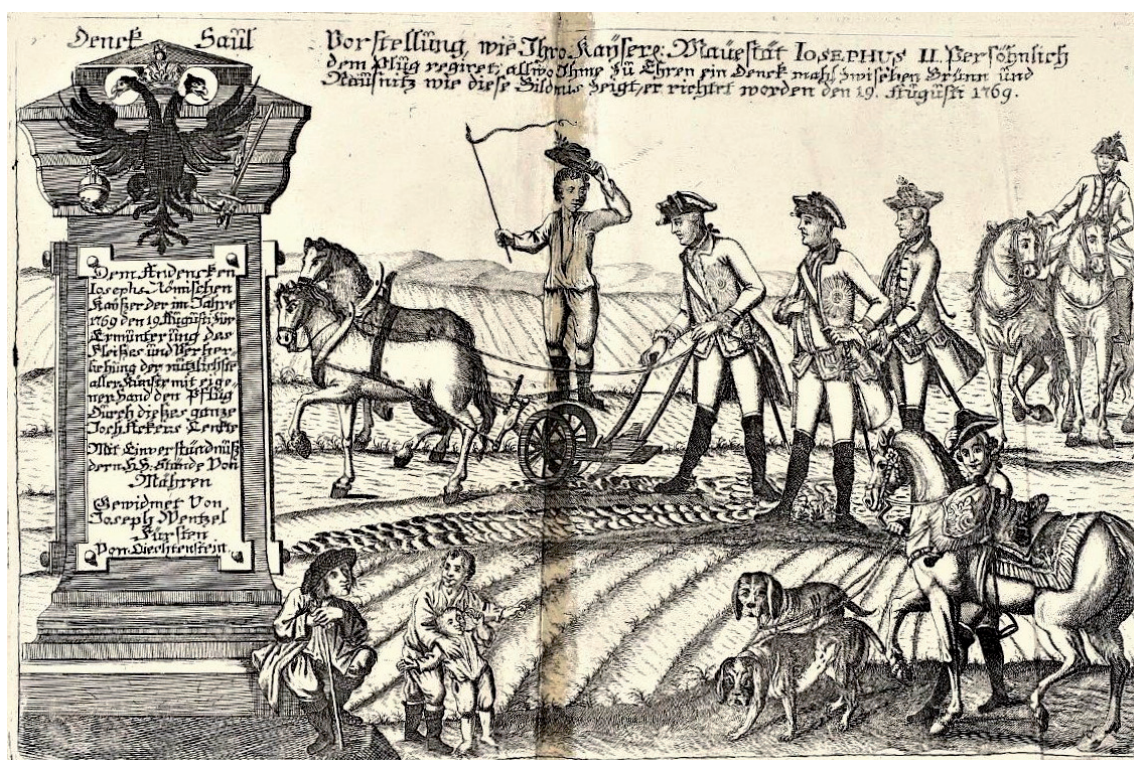 Denck Saül
Vorstellüng, wie Ihro Kaÿsere: Maÿestät IOSEPHUS II. Persöhnlich
dem Plüg regiret; allwo Ihme zü Ehren ein Denck mahl zwischen Brünn und
Raüsnitz wie diese Bildnus zeigt, er richtet worden den 19. Aügüsti 1769.
Dem Andencken
Iosephs Römischen
Kaÿser der im Jahre
1769 den 19 Aügüsti zür
Ermünterüng des
Fleißes und Verher-
lichüng der nützlichste
aller Künste mit eige-
nen Hand den Pflüg
Dürch dieses ganze
lenkte
Mit Einverständnüß
deren HH. Stände Von
Mähren
Gewidmet Von
Joseph Wentzel
Fürsten
Von Liechtenstein